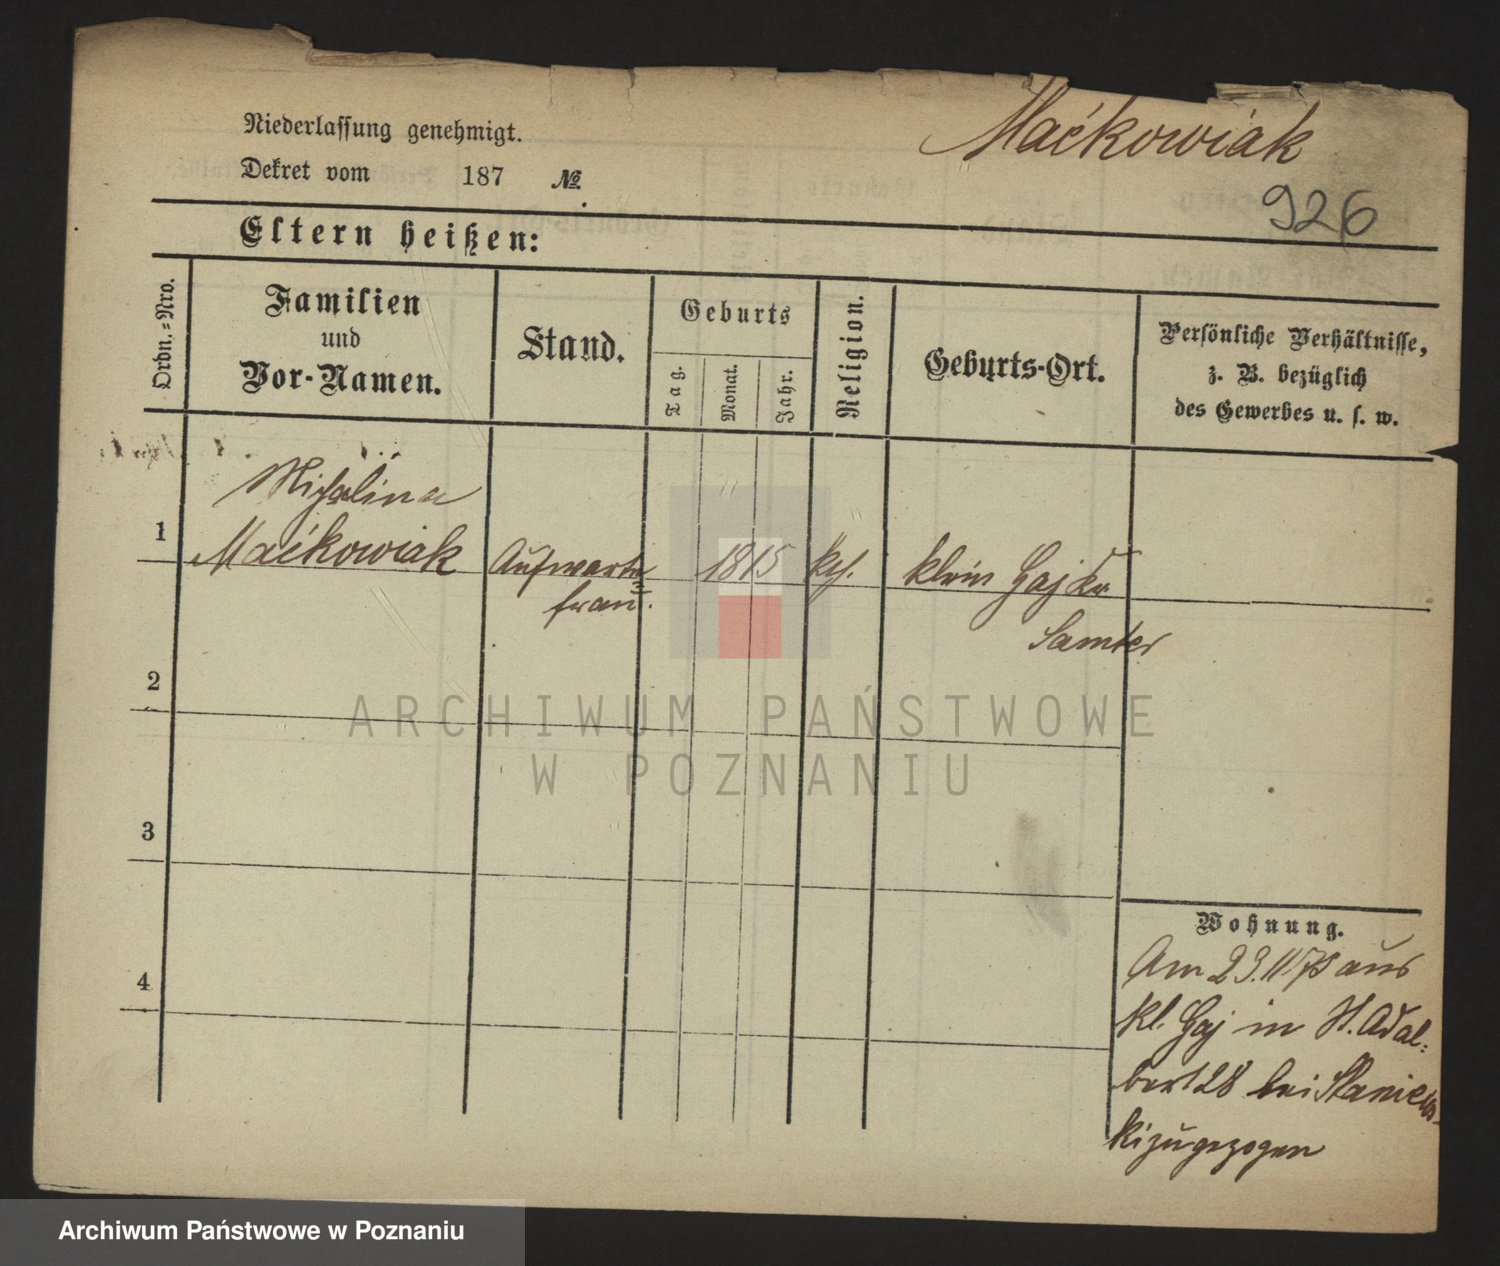 Maćkowiak
926
Niederlassung genehmigt.
Dekret vom 187 №
Eltern heißen:
Ordn.-Nro.
Familien
und
Vor-Namen.
Stand.
Geburts
Tag.
Monat.
Jahr.
Religion.
Geburts-Ort.
Persönliche Verhältnisse,
z. B. bezüglich
des Gewerbes u. s. w.
1
Michalina
Maćkowiak
Aufwarte
frau.
1815
kth.
klein Gaj Kr
Samter
2
3
4
Wohnung.
Am 23.11.75 aus
kl. Gaj in St. Adal-
bert 28 bei Staniews-
ki zugezogen
ARCHIWUM PAŃSTWOWE
W POZNANIU
Archiwum Państwowe w Poznaniu